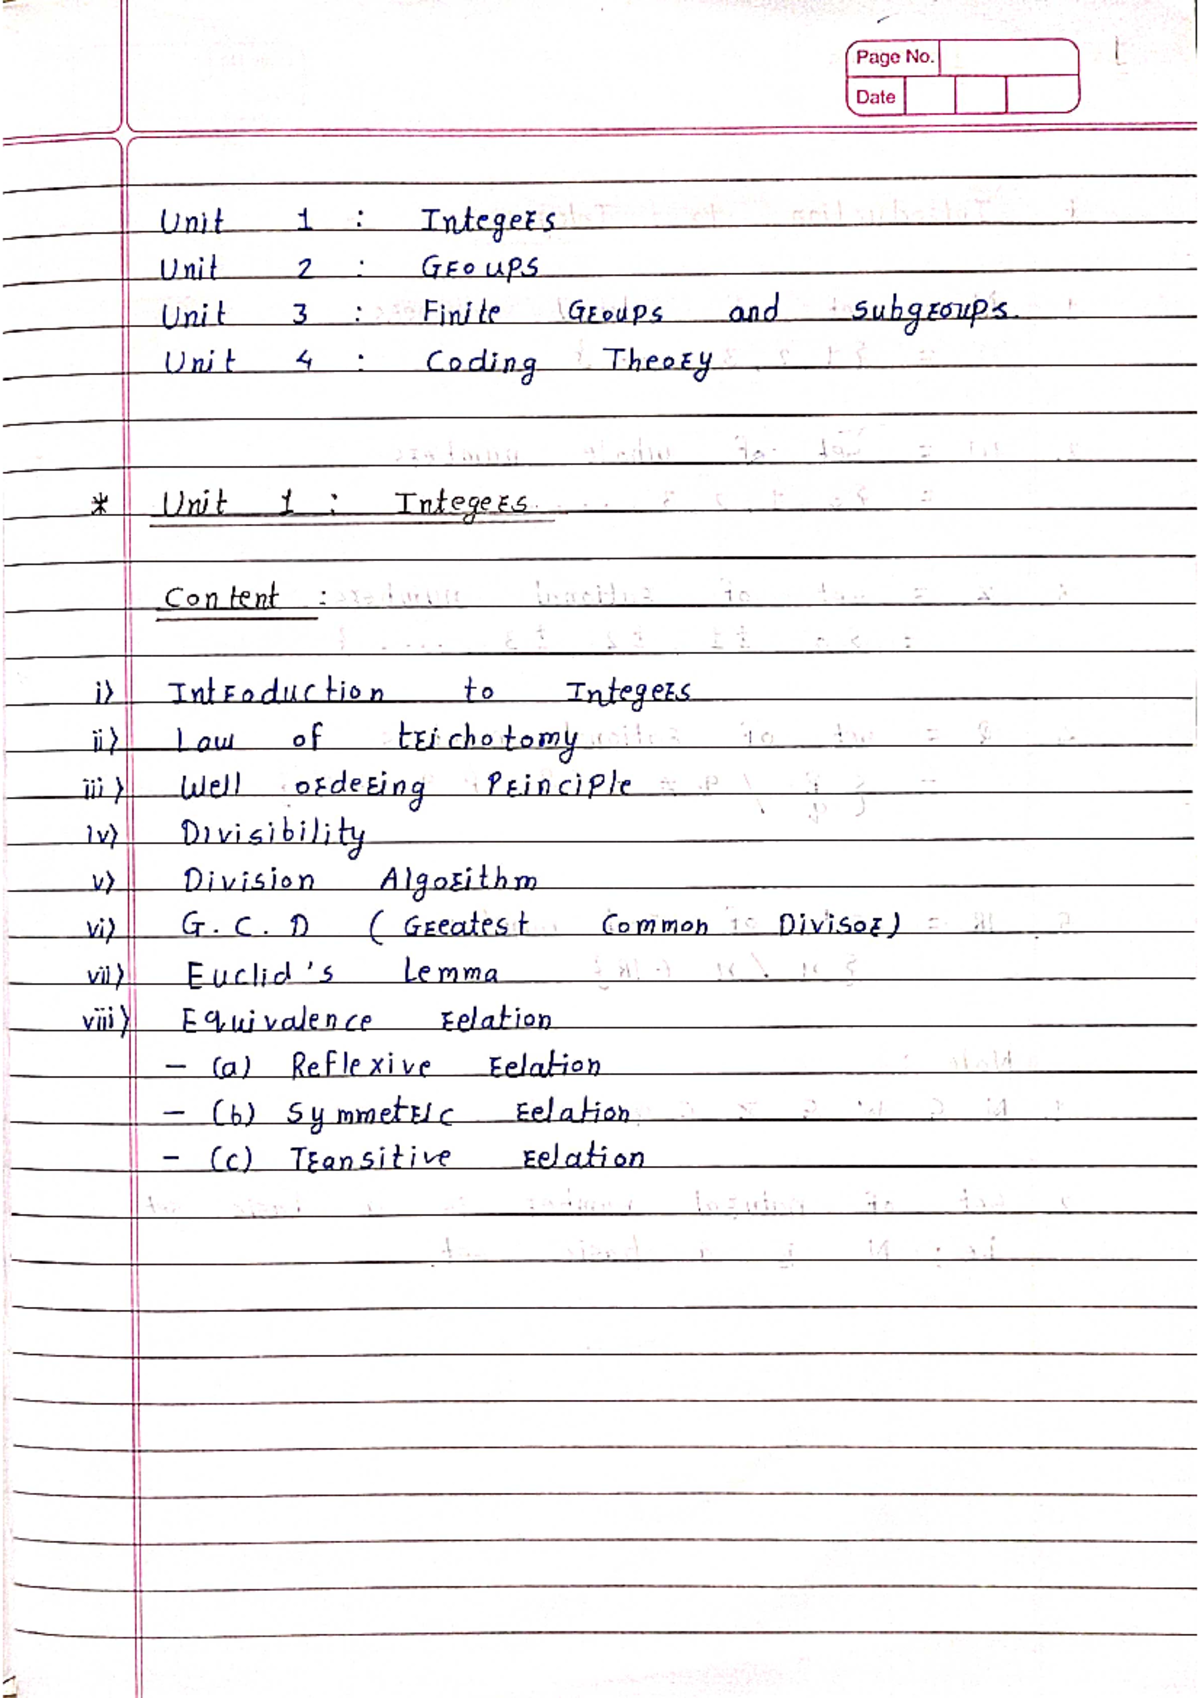 Page No.
Date
Unit 1 : Integers
Unit 2 : Groups
Unit 3 : Finite Groups and subgroups.
Unit 4 : Coding Theory
* Unit 1 : Integers.
Content :
i) Introduction to Integers
ii) Law of trichotomy
iii) Well ordering Principle
iv) Divisibility
v) Division Algorithm
vi) G.C.D (Greatest Common Divisor)
vii) Euclid's Lemma
viii) Equivalence relation
- (a) Reflexive relation
- (b) Symmetric relation
- (c) Transitive relation